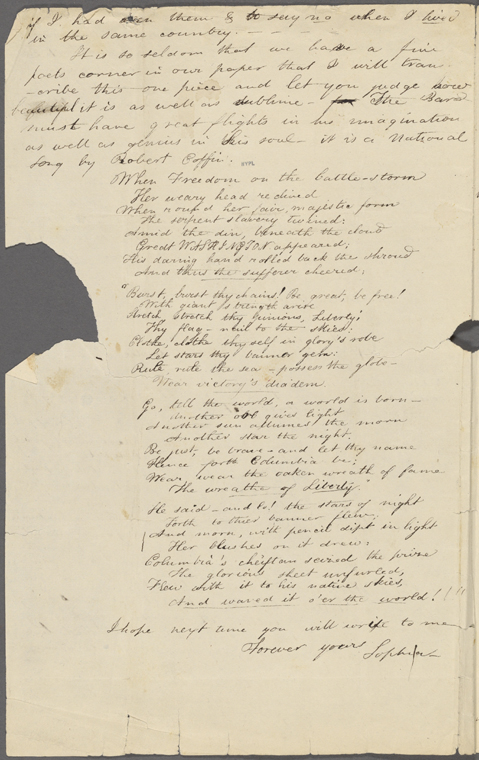 if I had seen them & to say no when I lived
in the same country. - - -
It is so seldom that we have a fine
poets corner in our paper that I will tran-
-cribe this one piece and let you judge how
beautiful it is as well as sublime - The Bard
must have great flights in his imagination
as well as genius in his soul - it is a National
song by Robert Coffin.
When Freedom on the battle-storm
Her weary head reclined
When round her fair, majestic form
The serpent slavery twined;
Amid the din, beneath the cloud
Great WASHINGTON appeared;
His daring hand rolled back the shroud
And thus the sufferer cheered,
"Burst, burst thy chains! Be great, be free!
With giant strength arise
Stretch, stretch thy pinions, Liberty;
Thy flag - nail to the skies!
Clothe, clothe thyself in glory's robe
Let stars thy banner gem.
Rule, rule the sea - possess the globe -
Wear victory's diadem.
Go, tell the world, a world is born -
Another orb gives light
Another sun illumes the morn
Another star the night.
Be just, be brave - and let thy name
Hence forth Columbia be;
Wear, wear the oaken wreath of fame
The wreathe of Liberty."
He said - and lo! the stars of night
Forth to their banner flew;
And morn, with pencil dipt in light
Her blushes on it drew:
Columbia's chieftan seized the prize
The glorious sheet unfurled,
Flew with it to his native skies,
And waved it o'er the world! !!!
I hope next time you will write to me
Forever yours
Sophia